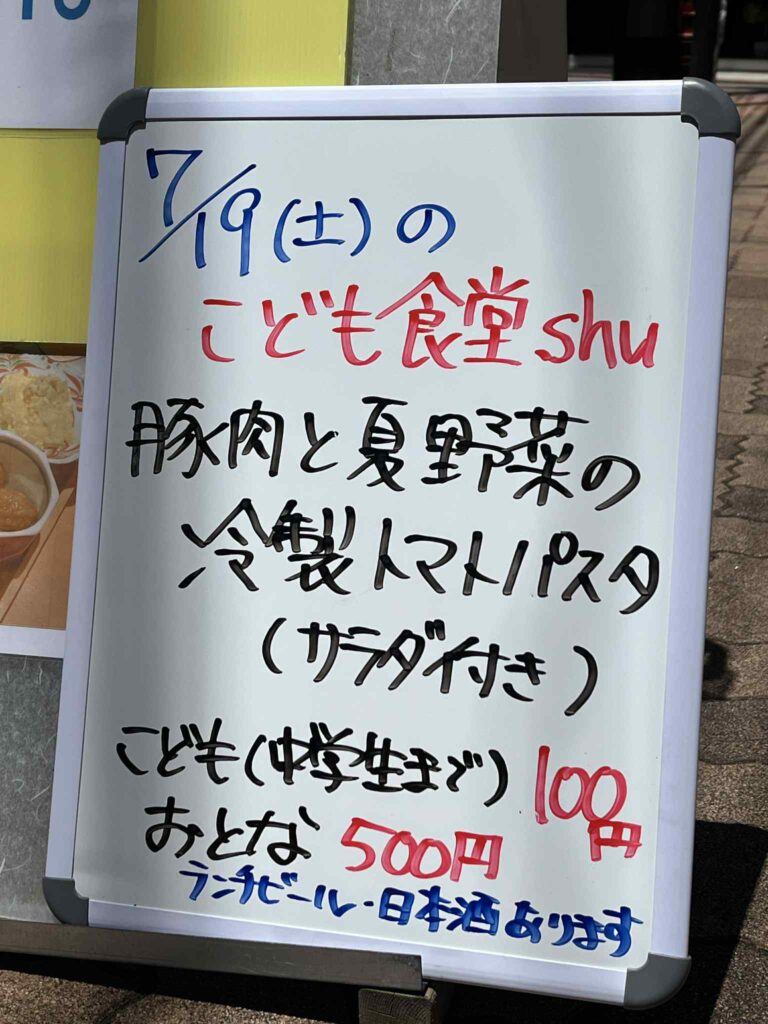 7/19(土)の
こども食堂shu
豚肉と夏野菜の
冷製トマトパスタ
(サラダ付き)
こども(中学生まで)100円
おとな 500円
ランチビール・日本酒あります